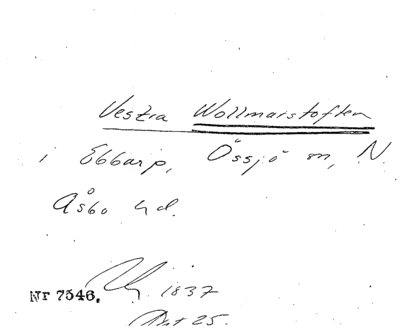 Vestra Wollmarstoften
i Ebbarp, Össjö sn, N.
Åsbo hd.
1837
Nr 7546.
Akt 25.